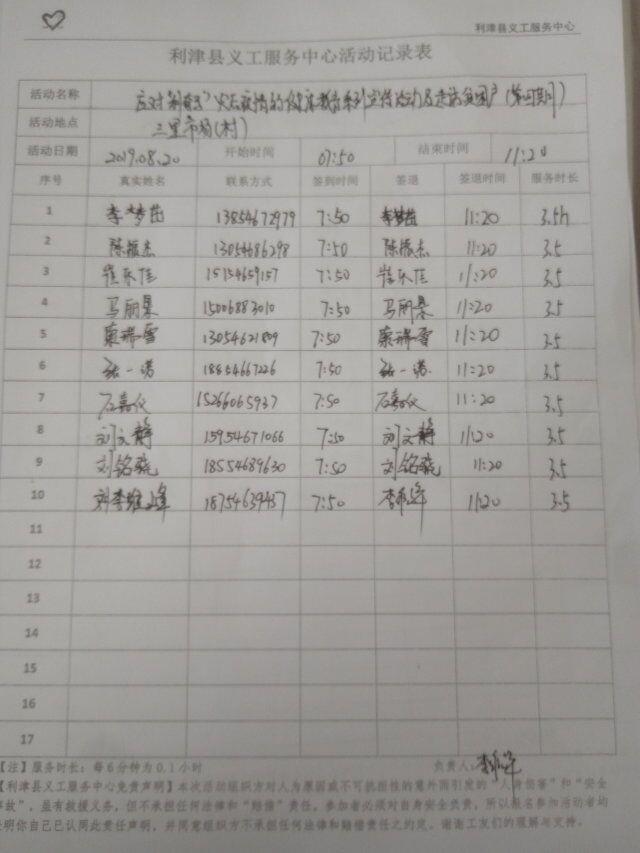 利津县义工服务中心
利津县义工服务中心活动记录表
活动名称 应对"利奇马"灾后疫情的健康教育系列宣传活动及走访贫困户(第四期)
活动地点 三里市场(村)
活动日期 2019.08.20 开始时间 07:50 结束时间 11:20
序号 真实姓名 联系方式 签到时间 签退 签退时间 服务时长
1 李梦苗 13854672979 7:50 李梦苗 11:20 3.5h
2 陈振杰 13054686298 7:50 陈振杰 11:20 3.5
3 崔乐佳 15154659157 7:50 崔乐佳 11:20 3.5
4 马丽景 15006883010 7:50 马丽景 11:20 3.5
5 康瑞雪 13054621809 7:50 康瑞雪 11:20 3.5
6 张一诺 18854667226 7:50 张一诺 11:20 3.5
7 石嘉仪 15266065937 7:50 石嘉仪 11:20 3.5
8 刘文静 15954671066 7:50 刘文静 11:20 3.5
9 刘铭晓 18554689630 7:50 刘铭晓 11:20 3.5
10 18754639437 7:50 11:20 3.5
11
12
13
14
15
16
17
【注】服务时长：每6分钟为0.1小时 负责人：
【利津县义工服务中心免责声明】本次活动组织方对人为原因或不可抗拒性的意外而引发的"人身伤害"和"安全
事故"，虽有救援义务，但不承担任何法律和"赔偿"责任，参加者必须对自身安全负责，所以报名参加活动者均
表明你自己已认同此责任声明，并同意组织方不承担任何法律和赔偿责任之约定。谢谢工友们的理解与支持。